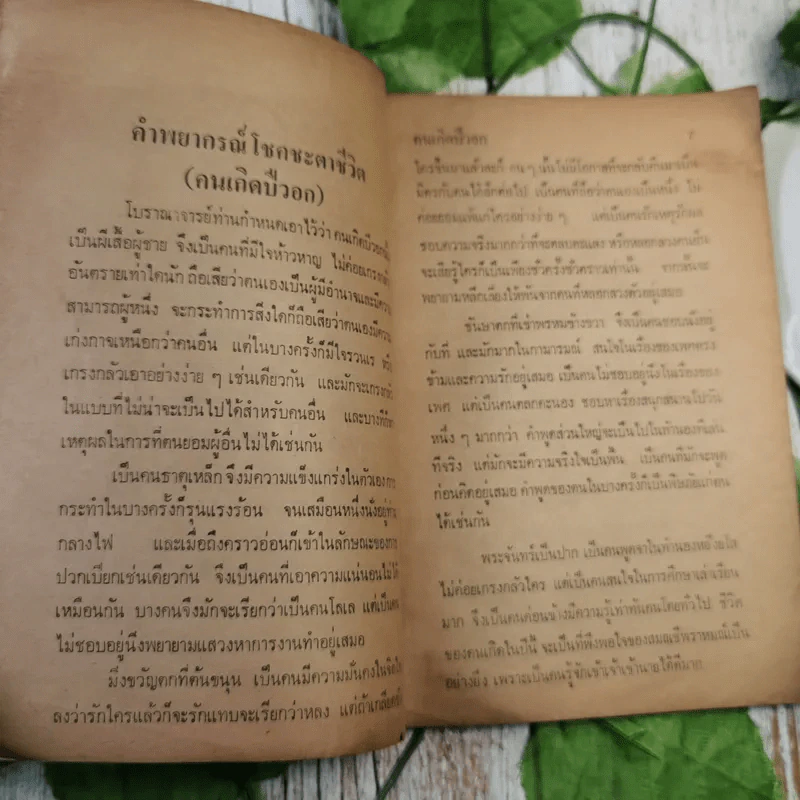 คำพยากรณ์โชคชะตาชีวิต
(คนเกิดปีวอก)
โบราณาจารย์ท่านกำหนดเอาไว้ว่า คนเกิดปีวอกนั้น
เป็นผีเสื้อผู้ชาย จึงเป็นคนที่มีใจห้าวหาญ ไม่ค่อยเกรงกลัว
อันตรายเท่าใดนัก ถือเสียว่าตนเองเป็นผู้มีอำนาจและมีความ
สามารถผู้หนึ่ง จะกระทำการสิ่งใดก็ถือเสียว่าตนเองมีความ
เก่งกาจเหนือกว่าคนอื่น แต่ในบางครั้งก็มีใจรวนเร
เกรงกลัวเอาอย่างง่าย ๆ เช่นเดียวกัน และมักจะเกรงกลัว
ในแบบที่ไม่น่าจะเป็นไปได้สำหรับคนอื่น และบางที
เหตุผลในการที่ตนยอมผู้อื่นไม่ได้เช่นกัน
เป็นคนธาตุเหล็ก จึงมีความแข็งแกร่งในตัวเอง การ
กระทำในบางครั้งก็รุนแรงร้อน จนเสมือนหนึ่งนั่งอยู่
กลางไฟ และเมื่อถึงคราวอ่อนก็เข้าในลักษณะของการ
ปวกเปียกเช่นเดียวกัน จึงเป็นคนที่เอาความแน่นอนไม่ได้
เหมือนกัน บางคนจึงมักจะเรียกว่าเป็นคนโลเล แต่เป็นคน
ไม่ชอบอยู่นิ่งพยายามแสวงหาการงานทำอยู่เสมอ
มิ่งขวัญตกที่ต้นขนุน เป็นคนมีความมั่นคงในจิตใจ
ลงว่ารักใครแล้วก็จะรักแทบจะเรียกว่าหลง แต่ถ้าเกลียด
คนเกิดปีวอก 7
ใครขึ้นมาแล้วละก็ คน ๆ นั้นไม่มีโอกาสที่จะกลับคืนมาเป็น
มิตรกับตนได้อีกต่อไป เป็นคนที่ถือว่าตนเองเป็นหนึ่ง ไม่
ค่อยยอมแพ้แก่ใครอย่างง่าย ๆ แต่เป็นคนรักเหตุรักผล
ชอบความจริงมากกว่าที่จะตลบตะแลง หรือหลอกลวงคนอื่น
จะเสียรู้ใครก็เป็นเพียงชั่วครั้งชั่วคราวเท่านั้น จากนั้นจะ
พยายามหลีกเลี่ยงให้พ้นจากคนที่หลอกลวงตัวอยู่เสมอ
ขันษาตกที่เข่าพรหมข้างขวา จึงเป็นคนชอบนั่งอยู่
กับที่ และมักมากในกามารมณ์ สนใจในเรื่องของเพศตรง
ข้ามและความรักอยู่เสมอ เป็นคนไม่ชอบอยู่นิ่งในเรื่องของ
เพศ แต่เป็นคนตลกคะนอง ชอบหาเรื่องสนุกสนานไปวัน
หนึ่ง ๆ มากกว่า คำพูดส่วนใหญ่จะเป็นไปในทำนองทีเล่น
ทีจริง แต่มักจะมีความจริงใจเป็นพื้น เป็นคนที่มักจะพูด
ก่อนคิดอยู่เสมอ คำพูดของตนในบางครั้งก็เป็นพิษภัยแก่ตน
ได้เช่นกัน
พระจันทร์เป็นปาก เป็นคนพูดจาในทำนองหยิ่งยโส
ไม่ค่อยเกรงกลัวใคร แต่เป็นคนสนใจในการศึกษาเล่าเรียน
มาก จึงเป็นคนค่อนข้างมีความรู้เท่าทันคนโดยทั่วไป ชีวิต
ของคนเกิดในปีนี้ จะเป็นที่พึงพอใจของสมณชีพราหมณ์เป็น
อย่างยิ่ง เพราะเป็นคนรู้จักเข้าเจ้าเข้านายได้ดีมาก